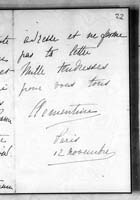 22
adresse et ne ferme
pas ta lettre
Mille tendresses
pour vous tous
Clementine
Paris
12 novembre